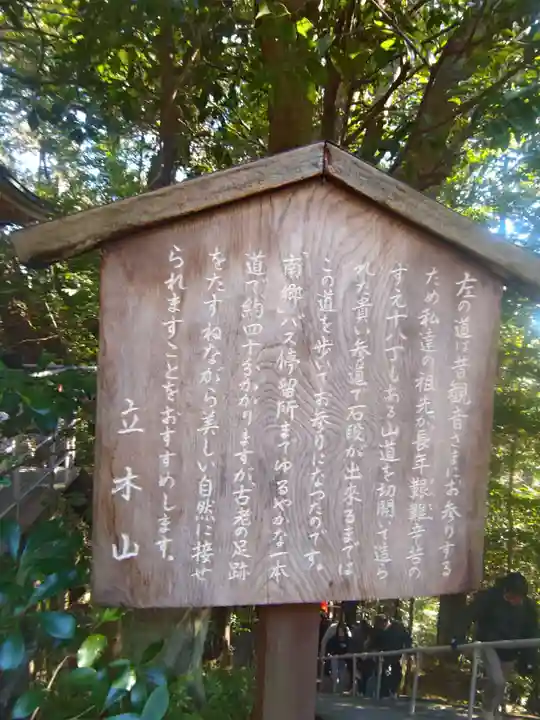 左の道は昔観音さまにお参りする
ため私達の祖先が長年艱難辛苦の
すえ十八丁もある山道を切開いて造ら
れた貴い参道で石段が出来るまでは
この道を歩いてお参りになつたのです。
南郷バス停留所までゆるやかな一本
道で約四十分かかりますが、古老の足跡
をたずねながら美しい自然に接せ
られますことをおすすめします。
立木山